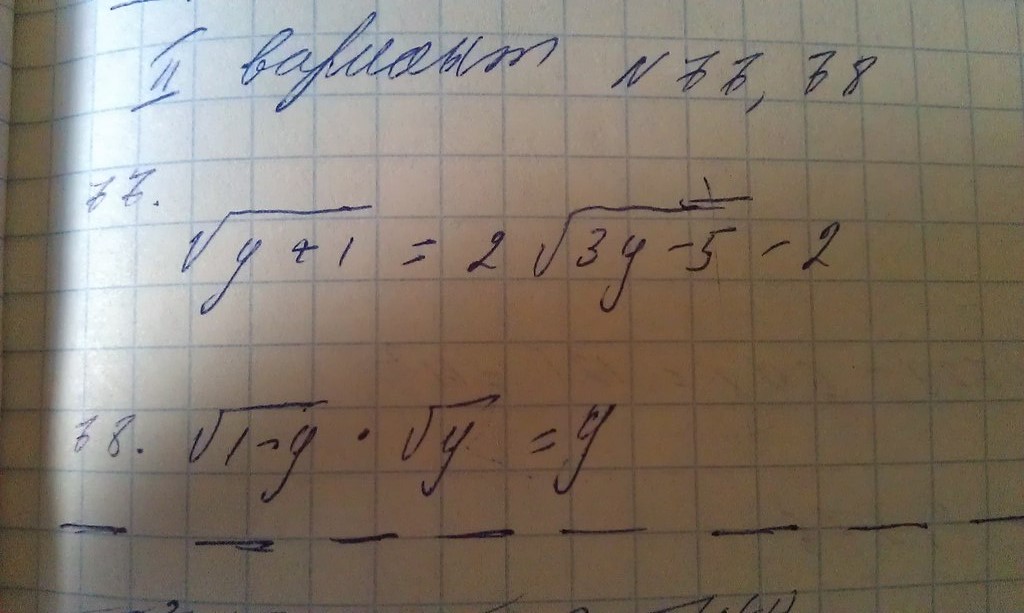 II вариант N 77, 78
77.
√(y + 1) = 2 √(3y - 5) - 2
78. √(1 - y) · √y = y